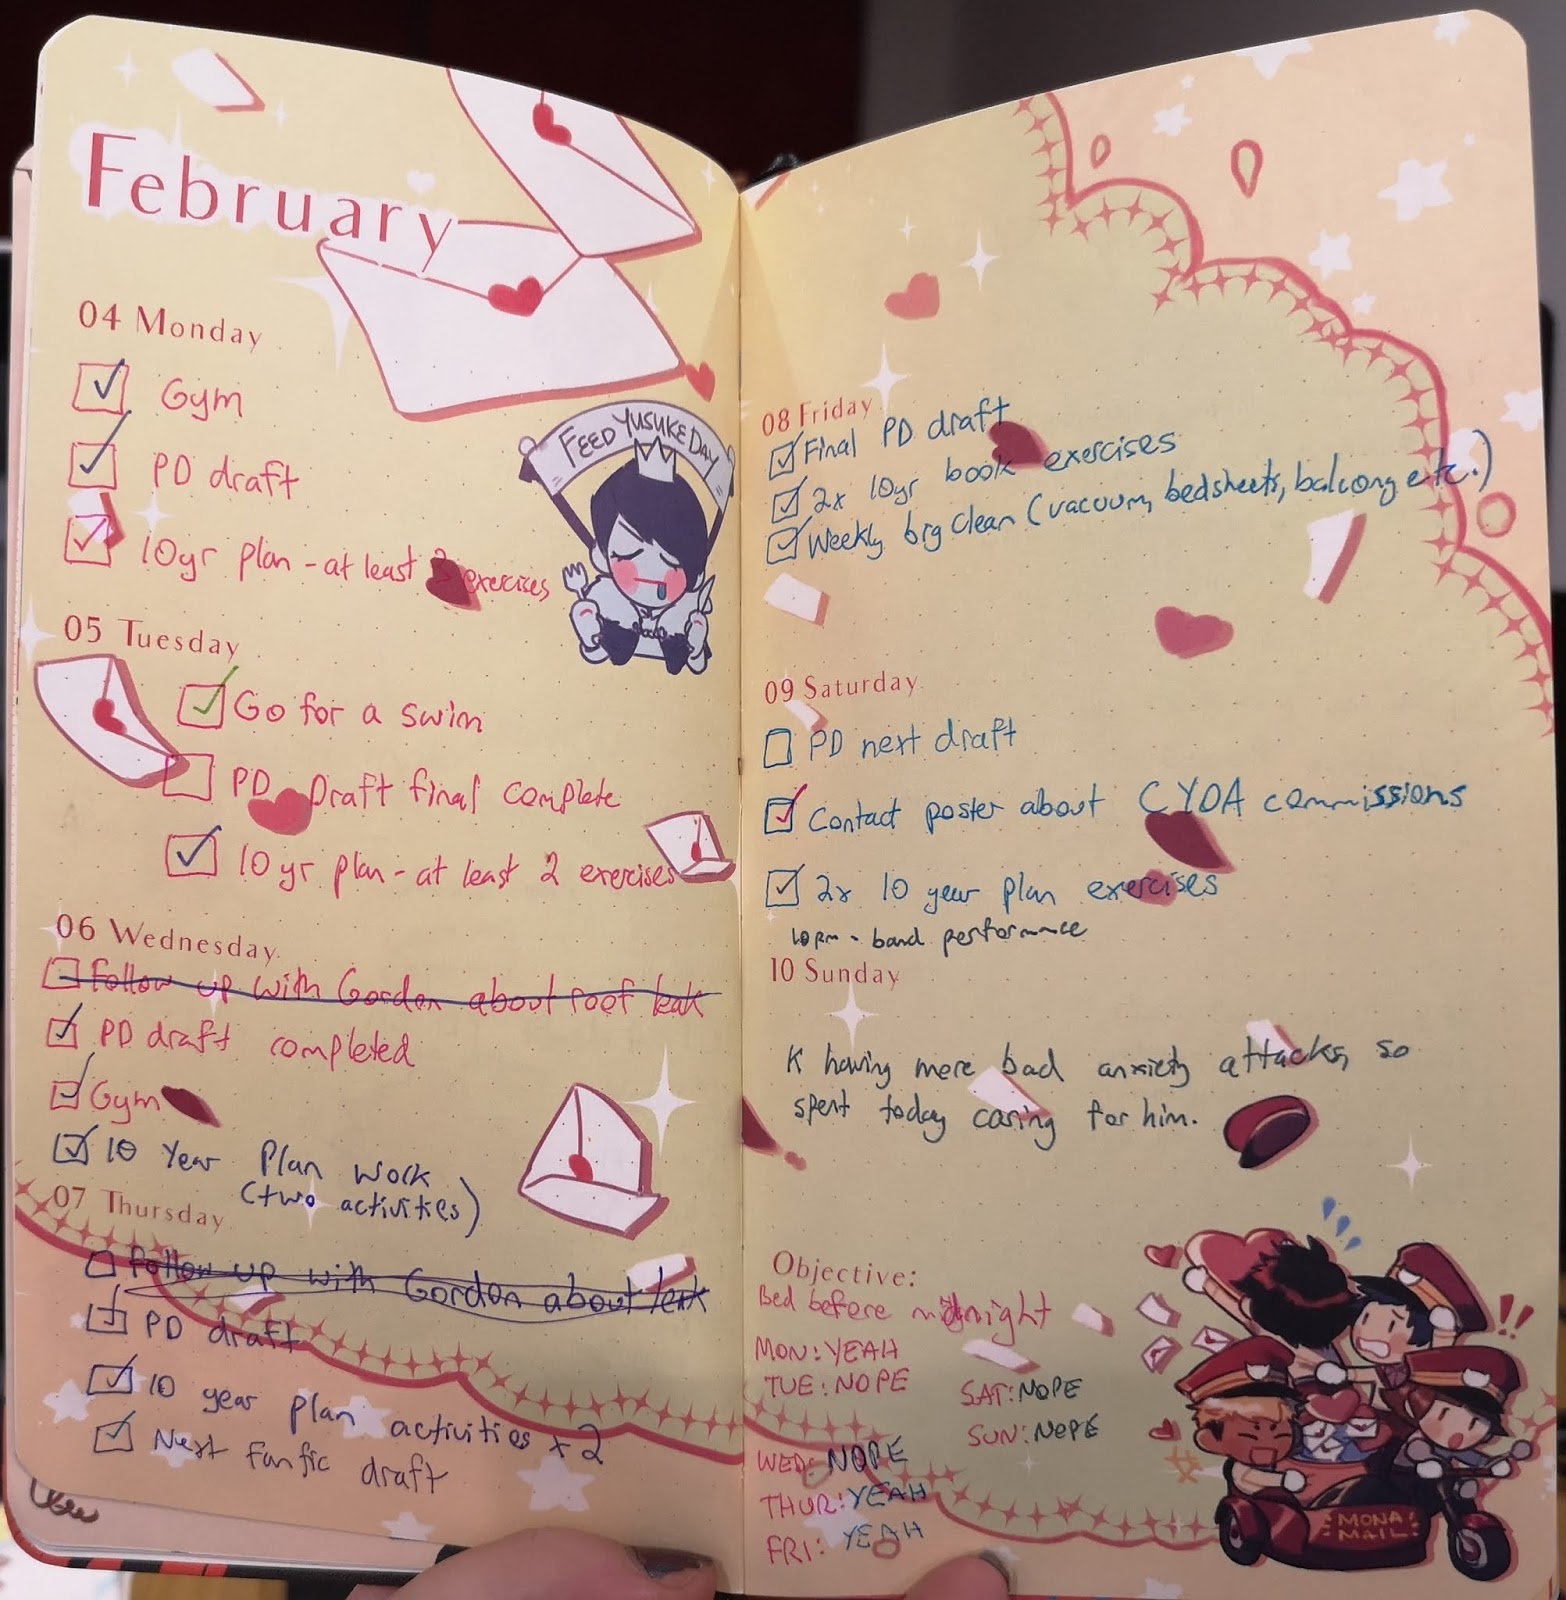 February
04 Monday
Gym
PD draft
10yr plan - at least 3 exercises
FEED YUSUKE DAY
05 Tuesday
Go for a swim
PD Draft final complete
10 yr plan - at least 2 exercises
06 Wednesday
Follow up with Gordon about roof leak
PD draft completed
Gym
10 Year Plan Work
(two activities)
07 Thursday
Follow up with Gordon about leak
PD draft
10 year plan activities x 2
Next fanfic draft
08 Friday
Final PD draft
2x 10yr book exercises
Weekly big clean (vacuum, bedsheets, balcony etc.)
09 Saturday
PD next draft
Contact poster about CYOA commissions
2x 10 year plan exercises
10pm - band performance
10 Sunday
K having mere bad anxiety attacks, so
spent today caring for him.
Objective:
Bed before midnight
MON: YEAH
TUE: NOPE
SAT: NOPE
SUN: NOPE
WED: NOPE
THUR: YEAH
FRI: YEAH
MONA
MAIL